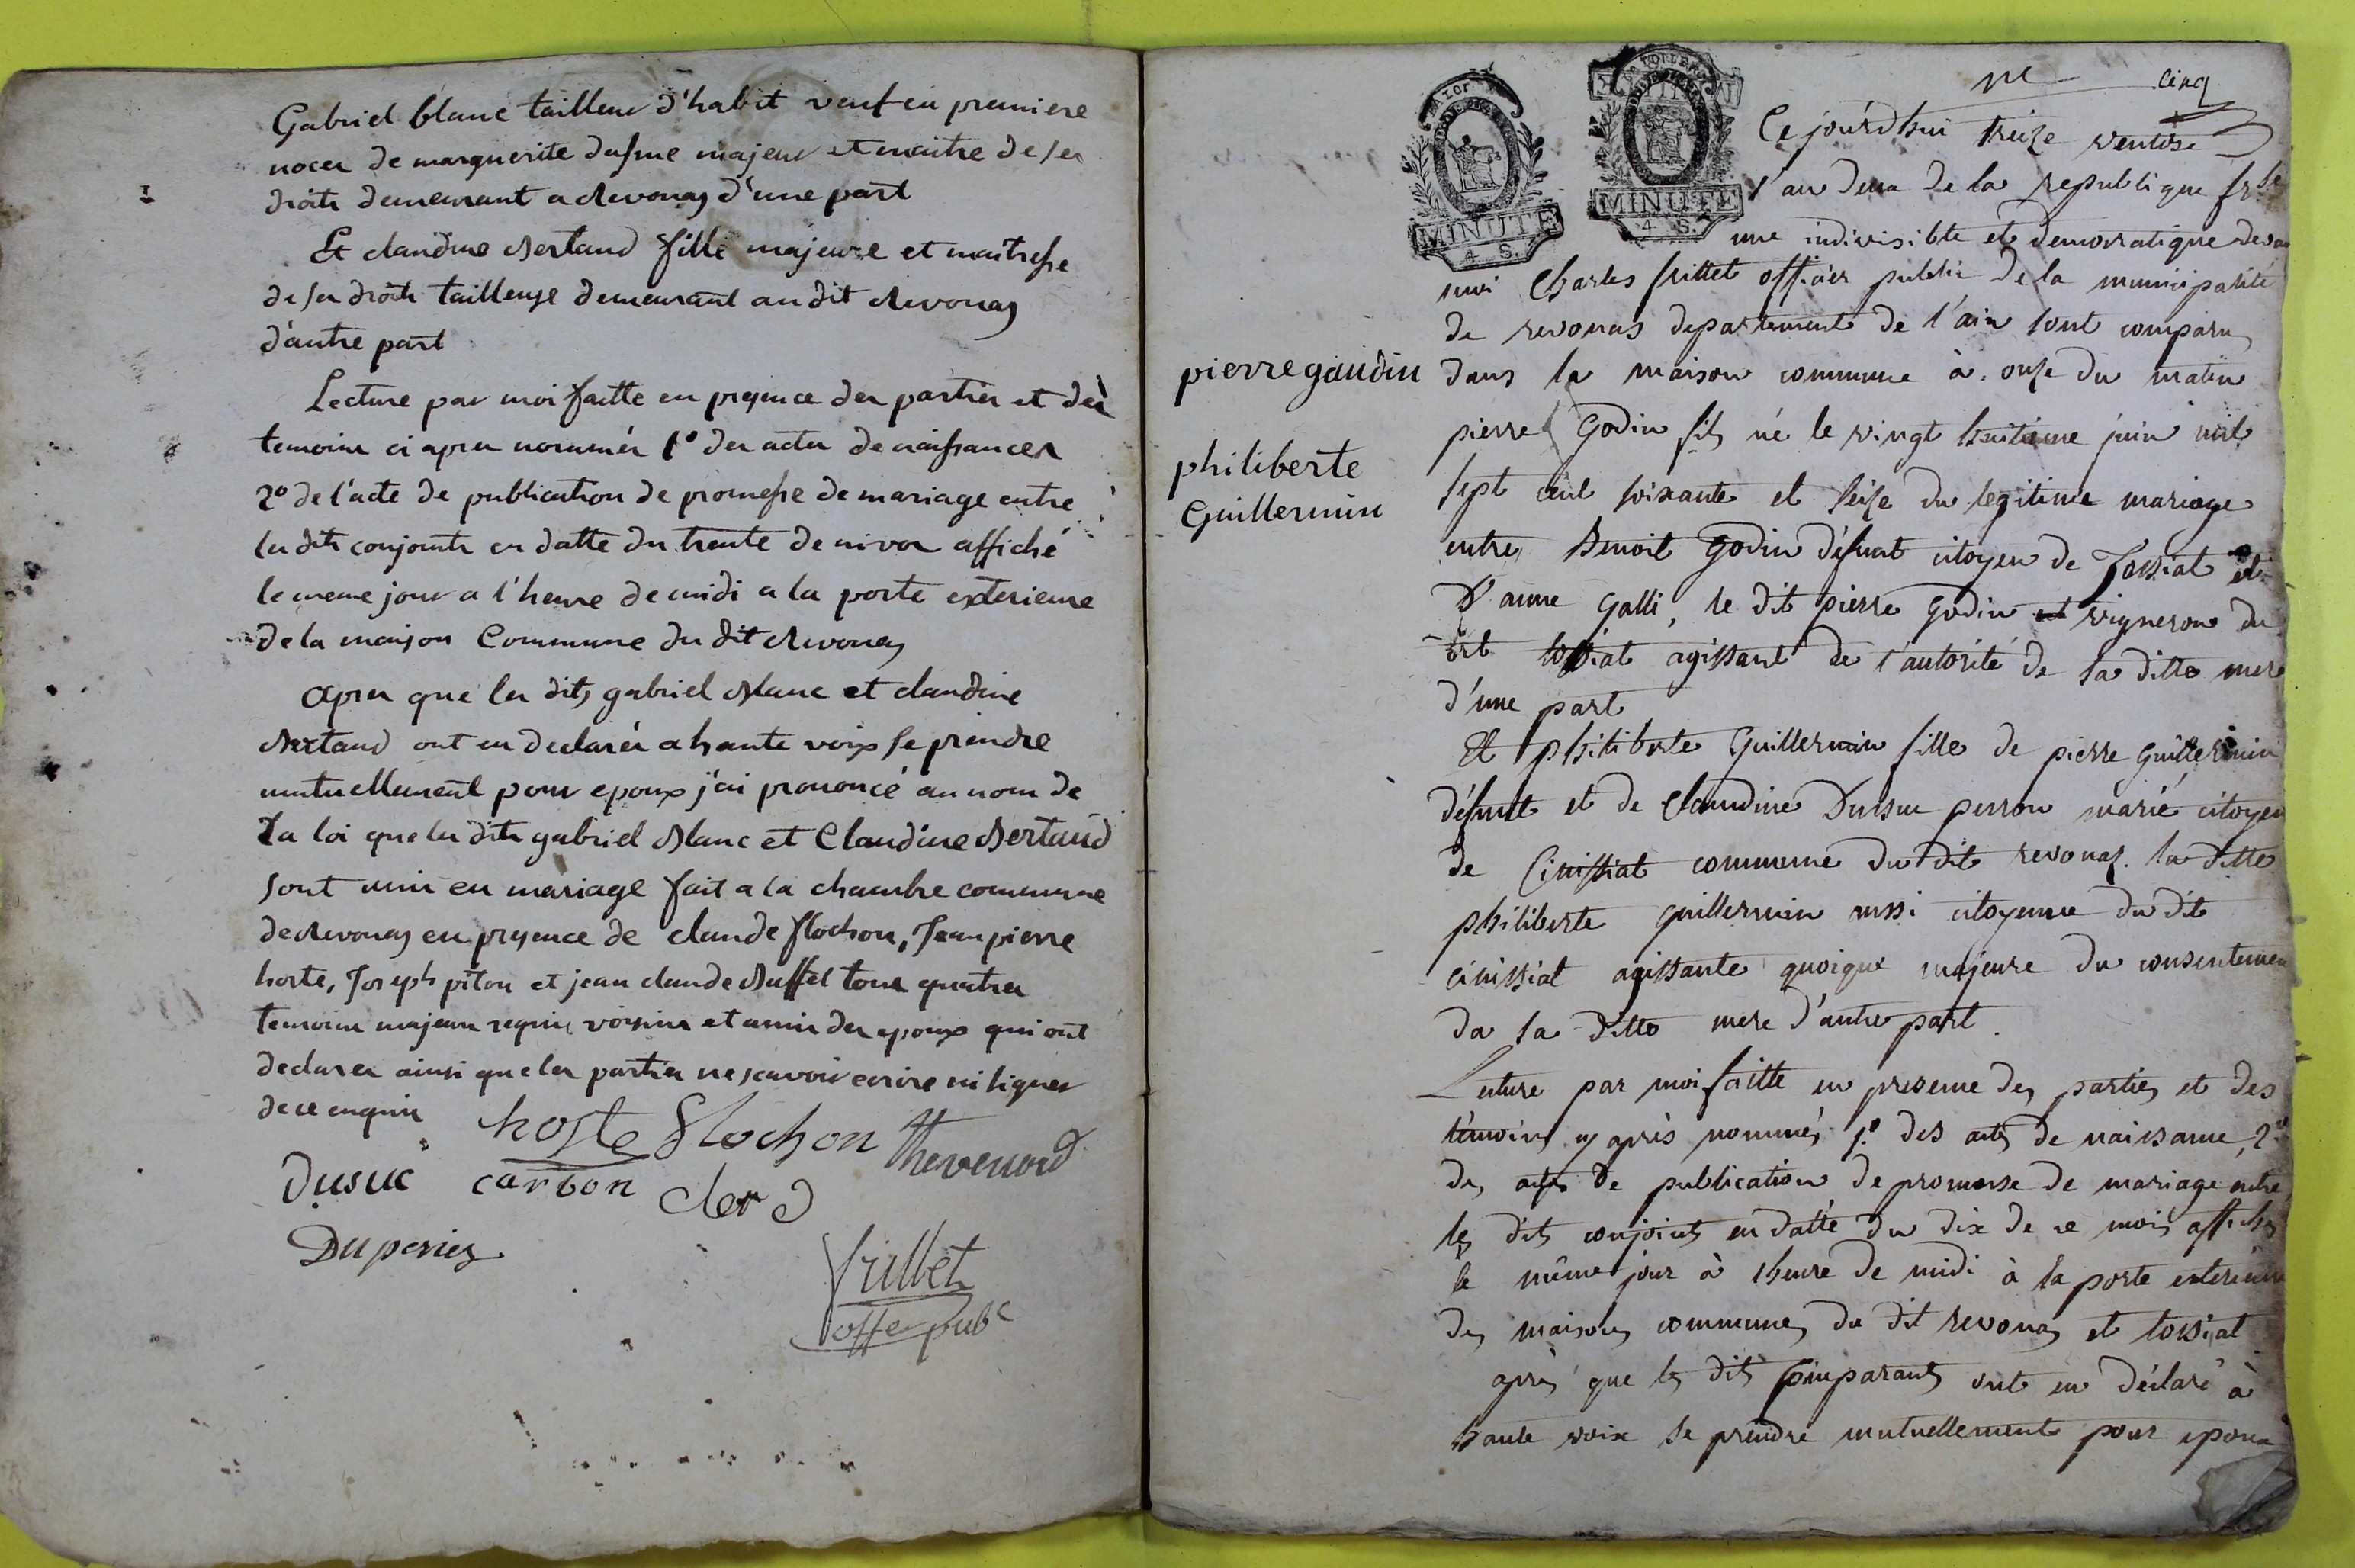 Gabriel blanc tailleur d'habit veuf en premiere
noces de marguerite majeur et maitre de ses
droits demeurant a Revonas d'une part
Et claudine Bertaud fille majeure et maitresse
de ses droits tailleuse demeurant au dit Revonas
d'autre part
Lecture par moi faitte en presence des parties et des
temoins ci apres nommés 1° des actes de naissances
2° de l'acte de publication de promesse de mariage entre
les dits conjoints en datte du trente de nivos affiché
le meme jour a l'heure de midi a la porte exterieure
de la maison Commune du dit Revonas
apres que les dits gabriel Blanc et claudine
Bertaud ont eu declarés a haute voix se prendre
mutuellement pour epoux j'ai prononcé au nom de
la loi que les dits gabriel Blanc et Claudine Bertaud
sont unis en mariage fait a la chambre commune
de Revonas en presence de claude flochon, Jean pierre
hoste, Joseph piton et jean claude Buffet tous quatres
temoins majeurs requis voisins et amis des epoux qui ont
declarer ainsi que les parties ne scavoir ecrire ni signer
de ce enquis hoste flochon thevenard
Dusuc carbon
Duperier
frillet
offer pubc
cinq
Ce jourd'hui treize ventose
l'an deux de la republique
MINUTE
4 S.
MINUTE
4 S.
une indivisible et democratique
moi Charles frillet officier public de la municipalité
de revonas departement de l'ain sont comparu
pierre gaudin
dans la maison commune à onze du matin
pierre Godin fils né le vingt huitieme juin mil
philiberte
Guillermin
sept cent soixante et seize du legitime mariage
entre Benoit Godin défunt citoyen de Tossiat et
D'anne Galli, le dit pierre Godin vigneron du
dit tossiat agissant de l'autorité de sa ditte mere
d'une part
Et philiberte Guillermin fille de pierre guillermin
défunt et de Claudine Dussuc marié citoyen
de Cinissiat commune du dit revonas. la ditte
philiberte guillermin aussi citoyenne du dit
cinissiat agissante quoique majeure du consentemen
da sa ditte mere d'autre part.
Lecture par moi faitte en presence des parties et des
témoins cy après nommés 1.° des actes de naissance, 2.°
des actes de publication de promesse de mariage entre
les dits conjoints en datte du dix de ce mois affichés
le même jour à lheure de midi à la porte exterieure
des maisons communes du dit revonas et tossiat
après que les dits comparants ont eu déclaré à
haute voix se prendre mutuellement pour epoux